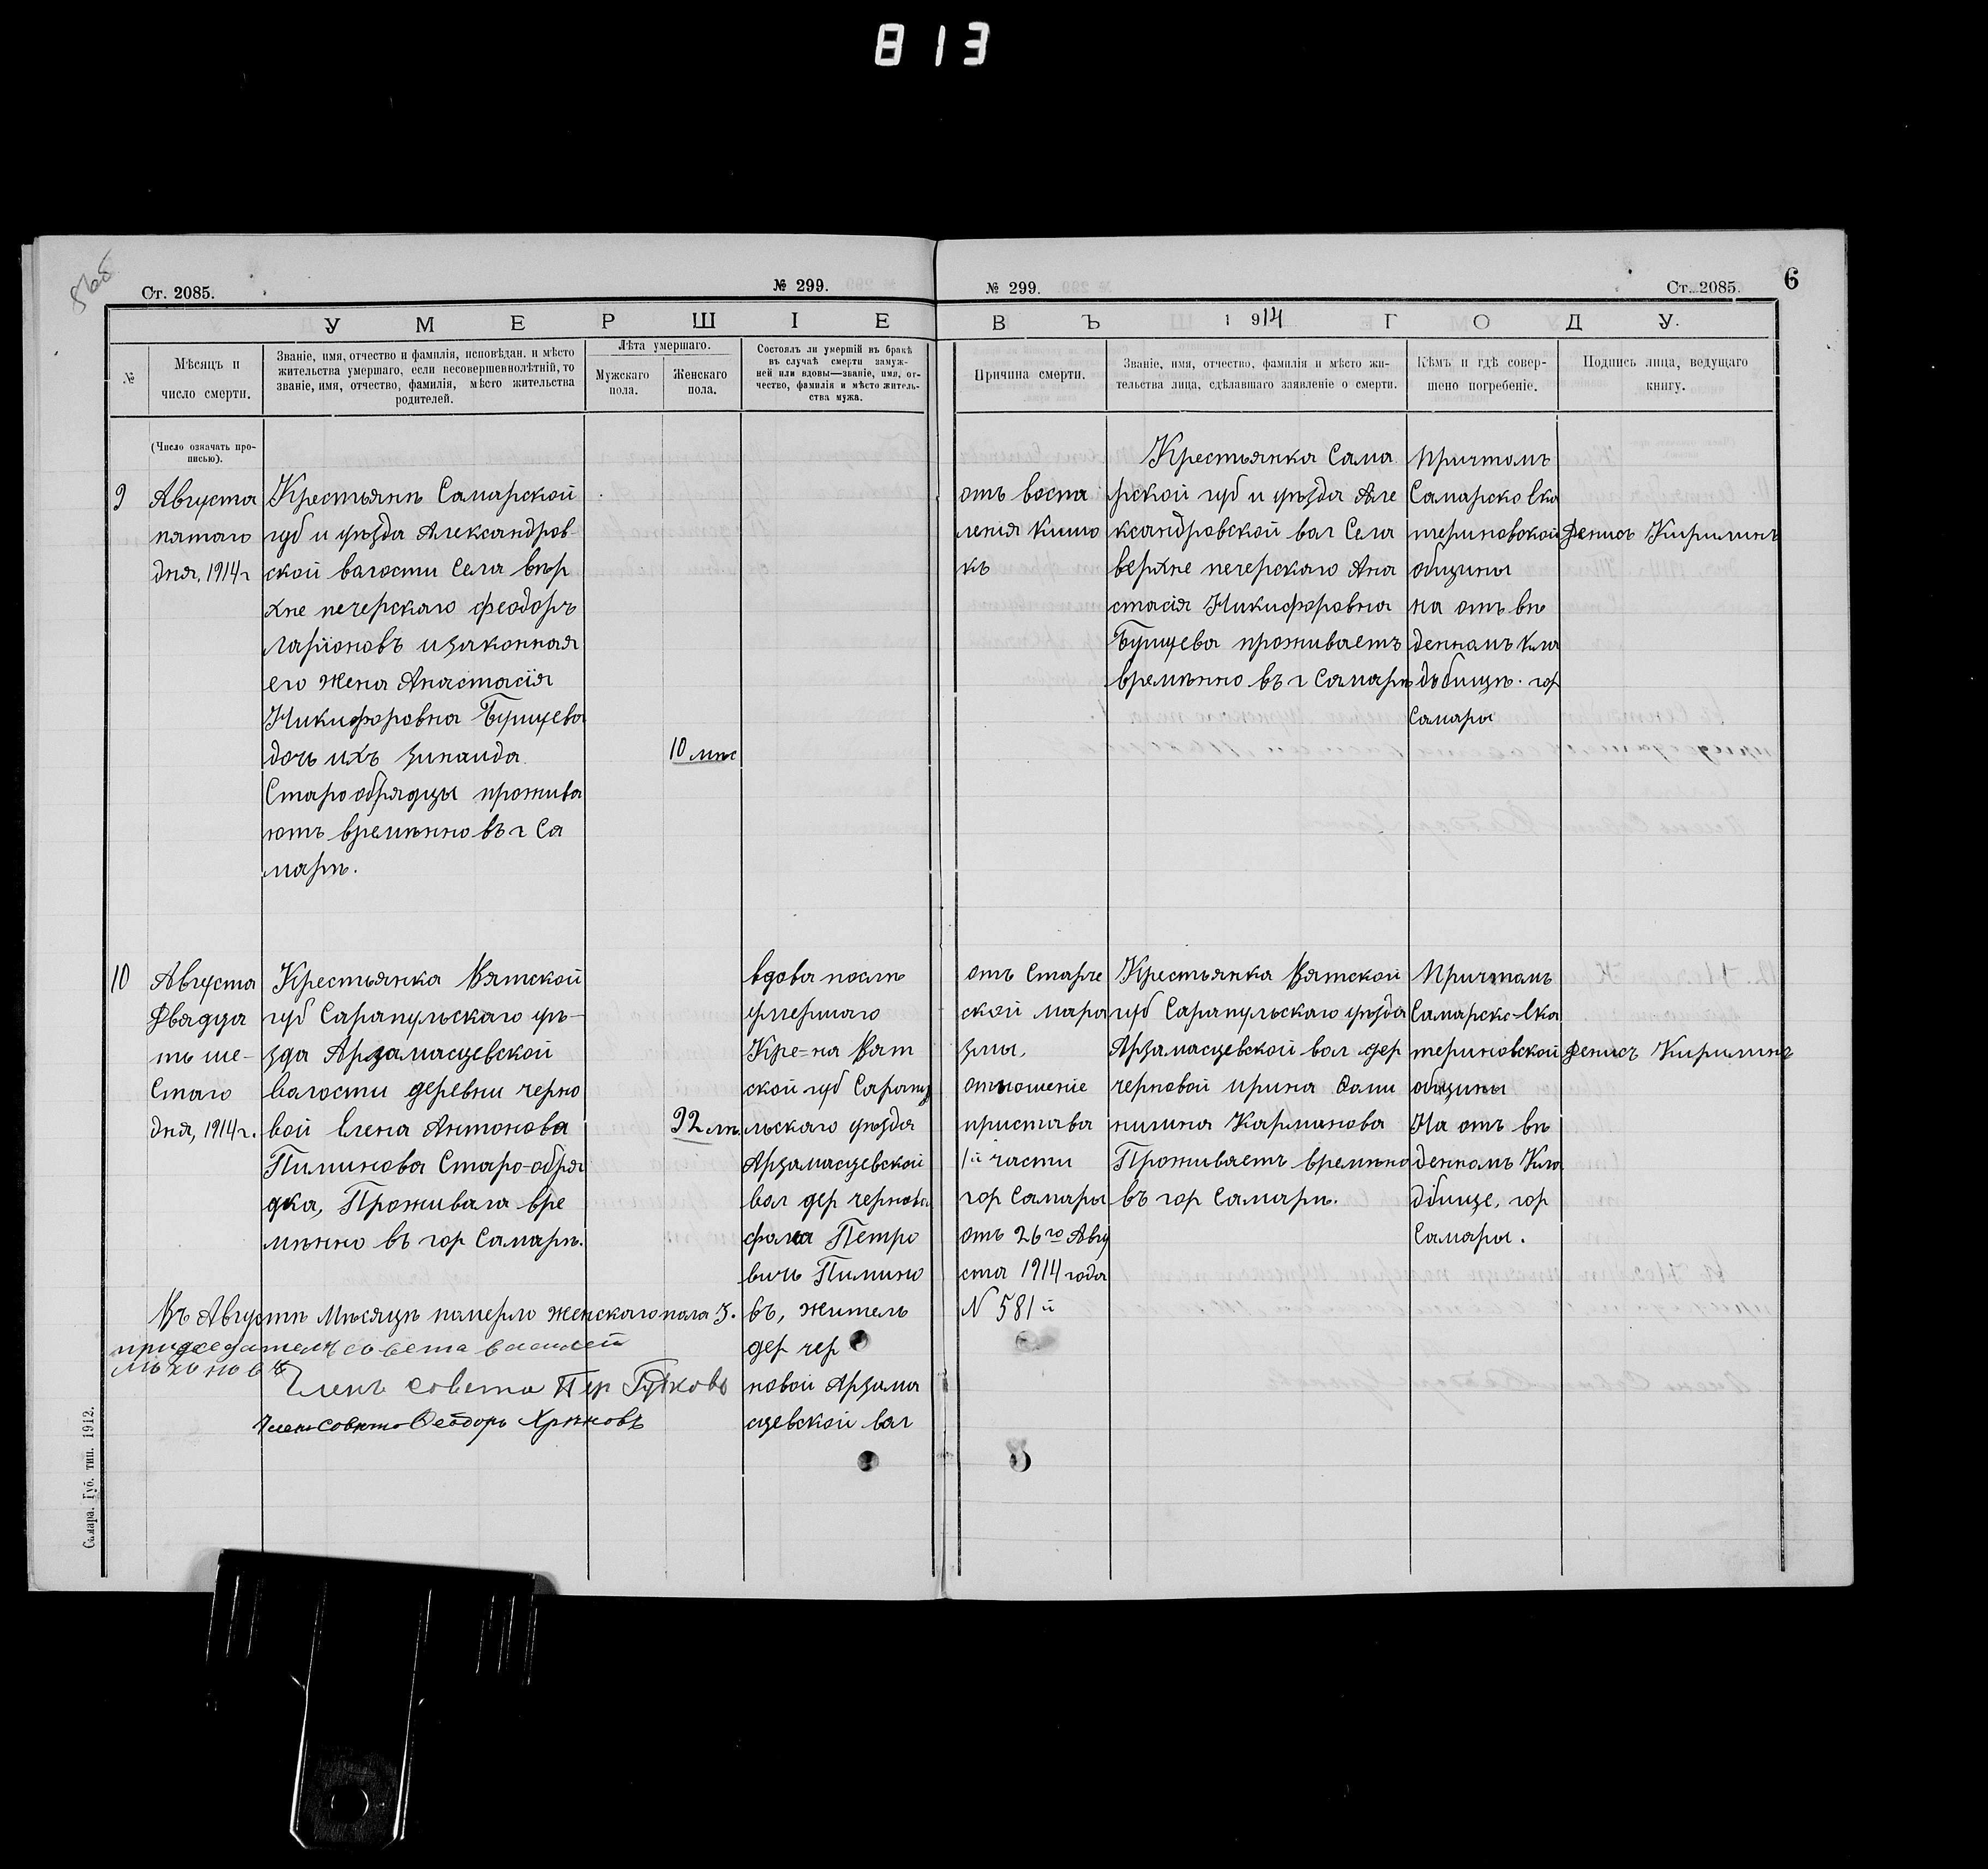 813
5 об
Ст. 2085.
№ 299.
№ 299.
Ст. 2085.
6
УМЕРШІЕ
ВЪ 1914 ГОДУ.
№
Мѣсяцъ и
число смерти.
Званіе, имя, отчество и фамилія, исповѣдан. и мѣсто
жительства умершаго, если несовершеннолѣтній, то
званіе, имя, отчество, фамилія, мѣсто жительства
родителей.
Лѣта умершаго.
Мужскаго
пола.
Женскаго
пола.
Состоялъ ли умершій въ бракѣ
въ случаѣ смерти замуж-
ней или вдовы—званіе, имя, от-
чество, фамилія и мѣсто житель-
ства мужа.
Причина смерти.
Званіе, имя, отчество, фамилія и мѣсто жи-
тельства лица, сдѣлавшаго заявленіе о смерти.
Кѣмъ и гдѣ совер-
шено погребеніе.
Подпись лица, ведущаго
книгу.
(Число означать про-
писью).
9
Августа
пятаго
дня, 1914 г
Крестьянѣ Самарской
губ и уѣзда Александров-
ской валости Села вѣр
хне печерскаго феодоръ
ларіоновъ и законная
его жена Анастасія
Никифоровна Бущева
дочь ихъ Зинаида
Старообрядцы прожива
ютъ времѣнно въ г Са
марѣ.
10 мѣс
отъ воспа
ленія кишо
къ
Крестьянка Сама
рской губ и уѣзда Але
ксандровской вол Села
верхне печерскаго Ана
стасія Никифоровна
Бущева проживаетъ
времѣнно въ г Самарѣ
Причтомъ
Самарско Ека
териновской
общины
на отъ вѣ
денномъ кла
дъбищѣ. гор
Самары
Денисъ Кирилинъ
10
Августа
Двадца
ть ше-
Стаго
дня, 1914 г.
Крестьянка Вятской
губ Сарапульскаго уѣ-
зда Арзамасцевской
валости деревни черно
вой Елена Антонова
Пиминова Старо-обря
дка, Проживала вре
мѣнно въ гор Самарѣ.
92 лѣ.
вдова послѣ
умершаго
Кре-на Вят
ской губ Сарапу
льскаго уѣзда
Арзамасцевской
вол дер чернова
фома Петро
вичь Пимино
въ, житель
дер чер
новой Арзама
сцевской вол
отъ Старче
ской мара
змы,
отношеніе
пристава
1й части
гор Самары
отъ 26го Авгу
ста 1914 года
N 581 й
Крестьянка Вятской
губ Сарапульскаго уѣзда
Арзамасцевской вол дер
черновой ирина Дани
лилина Карманова
Проживаетъ времѣно
въ гор Самарѣ.
Причтомъ
Самарско-Ека
териновской
общины
На отъ вѣ
денномъ Кла
дбище, гор
Самары.
Денисъ Кирилинъ
Въ Августѣ Мѣсяцѣ померло женскаго пола 3.
придседатель совета василей
Члень совета Петр Гудковъ
Члень совета Феодоръ Хрѣновъ
Самара. Губ. тип. 1912.